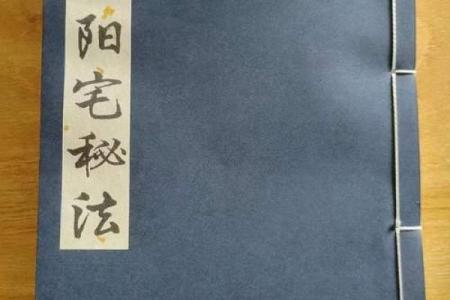 阳宅秘法